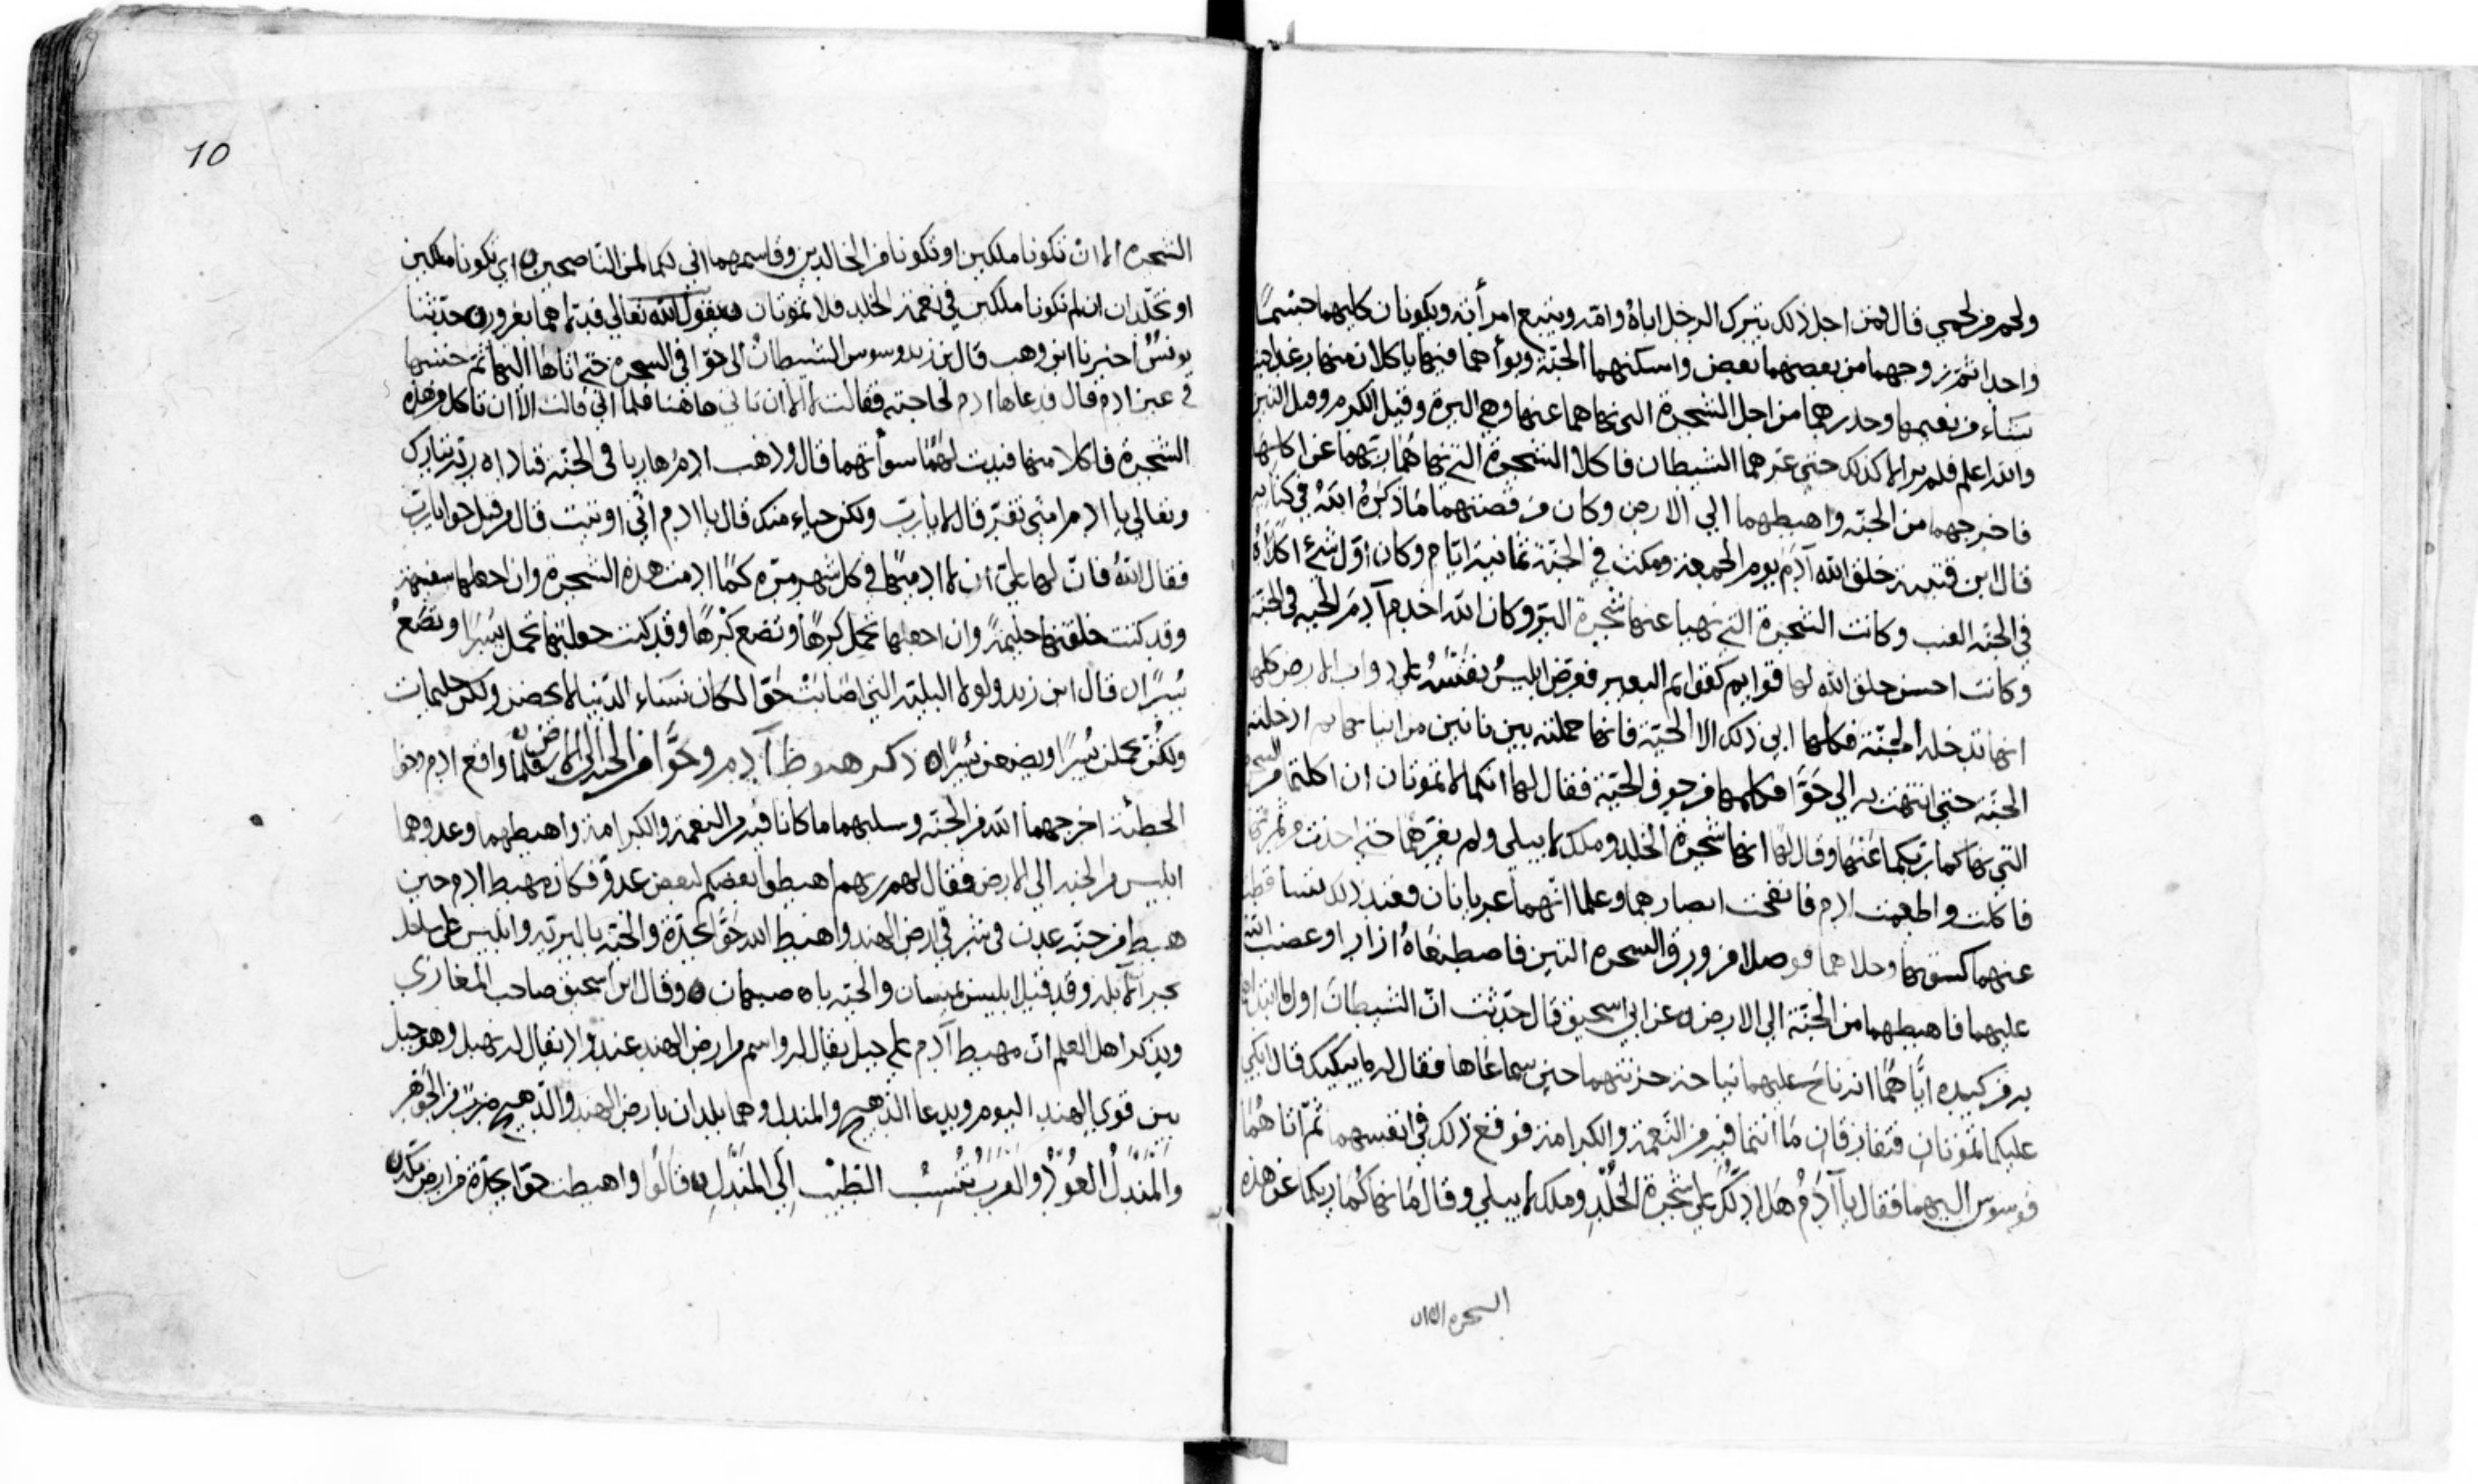 ولحم من لحمي قال فمن اجل ذلك يترك الرجل اباه وامه ويتبع امرأته ويكونان كلاهما جسما
واحدا ثم زوجهما من بعضهما بعض واسكنهما الجنة وبوأهما فيها ياكلان منها رغدا حيث
شاء من نعيمها وحذرهما من اجل الشجرة التي نهاهما عنها وهي البرة وقيل الكرم وقيل التين
والله اعلم فلم يزالا كذلك حتى غرهما الشيطان فاكلا الشجرة التي نهاهما ربهما عن اكلها
فاخرجهما من الجنة واهبطهما الي الارض وكان من قصتهما ما ذكره الله في كتابه
قال ابن قتيبة خلق الله آدم يوم الجمعة ومكث في الجنة ثمانية ايام وكان اول شئ اكلاه
في الجنة العنب وكانت الشجرة التي نهيا عنها شجرة البر وكان الله اخدم آدم الحية في الجنة
وكانت احسن خلق الله لها قوايم كقوايم البعير فعرض ابليس نفسه على دواب الارض كلها
انها تدخله الجنة فكلها ابي ذلك الا الحية فانها حملته بين نابين من انيابها ثم ادخلته
الجنة حتى انتهت به الي حوّا فكلمها من جوف الحية فقال لها انكما لا تموتان ان اكلتما من الشجرة
التي نهاكما ربكما عنها وقال لها انها شجرة الخلد وملك لا يبلي ولم يغرهما حتى اخذت من ثمرتها
فاكلت واطعمت ادم فانفتحت ابصارهما وعلما انهما عريانان فعند ذلك
عنهما كسوتهما وحلاهما فوصلا من ورق الشجرة التين فاصطنعاه ازارا وغضب الله
عليهما فاهبطهما من الجنة الي الارض عن ابي اسحق قال حدثت ان الشيطان اول ما ابتداه
به من كيده اياهما انه ناح عليهما نياحة حزنتهما حين سماعاها فقال له ما يبكيك قال ابكي
عليكما تموتان فتفارقان ما انتما فيه من النعمة والكرامة فوقع ذلك في انفسهما ثم اتاهما
فوسوس اليهما فقال يا آدم هل ادلك على شجرة الخلد وملك لا يبلي وقال ما نهاكما ربكما عن هذه
الشجرة الا ان
10
الشجرة الا ان تكونا ملكين او تكونا من الخالدين وقاسمهما اني لكما لمن الناصحين اي تكونا ملكين
او تخلدان ان لم تكونا ملكين في نعمة الخلد فلا تموتان يقول الله تعالي فدلاهما بغرور حدثنا
يونس اخبرنا ابن وهب قال ابن زيد وسوس الشيطان الى حوا في الشجرة حتى اتاها اليها ثم حسنها
في عين ادم قال فدعاها ادم لحاجته فقالت لا الا ان تاتي هاهنا فلما اتي قالت الا ان تاكل من هذه
الشجرة فاكلا منها فبدت لهما سوأتهما قال وذهب ادم هاربا في الجنة فناداه ربه تبارك
وتعالي يا ادم امني تفر قال لا يارب ولكن حياء منك قال يا ادم اني اوتيت قال من قبل حوا يارب
فقال الله فان لها علي ان لا ادميها في كل شهر مرة كما ادمت هذه الشجرة وان اجعلها سفيهة
وقد كنت خلقتها حليمة وان اجعلها تحمل كرها وتضع كرها وقد كنت جعلتها تحمل يسرا وتضع
يسرا قال ابن زيد ولولا البلية التي اصابت حوّا لكان نساء الدنيا لا يحضن ولكن حليمات
ولكن يحملن يسرا ويضعن يسرا ذكر هبوط آدم وحوّا من الجنة الى الارض فلما واقع ادم وحوا
الخطيئة اخرجهما الله من الجنة وسلبهما ما كانا فيه من النعمة والكرامة واهبطهما وعدوهما
ابليس من الجنة الي الارض فقال لهم ربهم اهبطوا بعضكم لبعض عدو فكان مهبط ادم حين
هبط من جنة عدن في شرقي ارض الهند واهبط الله حوّا بجدة والحية بالبرية وابليس على ساحل
بحر الابلة وقد قيل ابليس بميسان والحية باصبهان وقال ابن اسحق صاحب المغازي
ويذكر اهل العلم ان مهبط آدم على جبل يقال له واسم من ارض الهند عند واد يقال له بهيل وهو جبل
بين قري الهند اليوم ويدعا الدهنج والمندل وهما بلدان بارض الهند والدهنج ضرب من الجوهر
والمندل العود والعرب تنسب الطيب الي المندل قالوا واهبطت حوا بجدة من ارض مكة